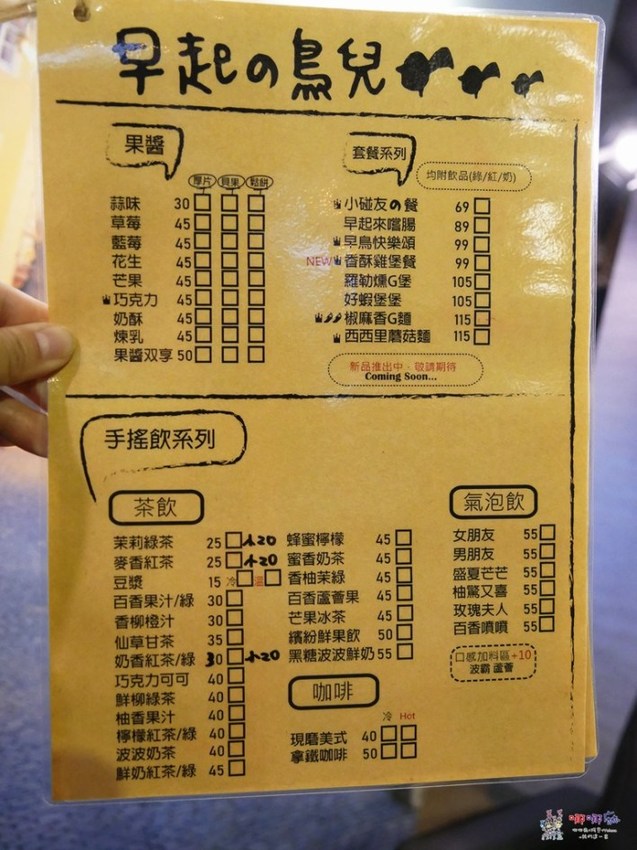 早起の鳥兒
果醬
厚片 貝果 鬆餅
蒜味 30
草莓 45
藍莓 45
花生 45
芒果 45
巧克力 45
奶酥 45
煉乳 45
果醬双享 50
套餐系列
均附飲品(綠/紅/奶)
小碰友の餐 69
早起來嚐腸 89
早鳥快樂頌 99
NEW 香酥雞堡餐 99
羅勒燻G堡 105
好蝦堡堡 105
椒麻香G麵 115
西西里蘑菇麵 115
新品推出中、敬請期待
Coming Soon...
手搖飲系列
茶飲
茉莉綠茶 25 小20
麥香紅茶 25 小20
豆漿 15 冷 溫
百香果汁/綠 30
香柳橙汁 30
仙草甘茶 35
奶香紅茶/綠 30 小20
巧克力可可 40
鮮柳綠茶 40
柚香果汁 40
檸檬紅茶/綠 40
波波奶茶 40
鮮奶紅茶/綠 45
蜂蜜檸檬 45
蜜香奶茶 45
香柚茉綠 45
百香蘆薈果 45
芒果冰茶 45
繽紛鮮果飲 50
黑糖波波鮮奶 55
咖啡
冷 Hot
現磨美式 40
拿鐵咖啡 50
氣泡飲
女朋友 55
男朋友 55
盛夏芒芒 55
柚驚又喜 55
玫瑰夫人 55
百香噴噴 55
口感加料區+10
波霸 蘆薈